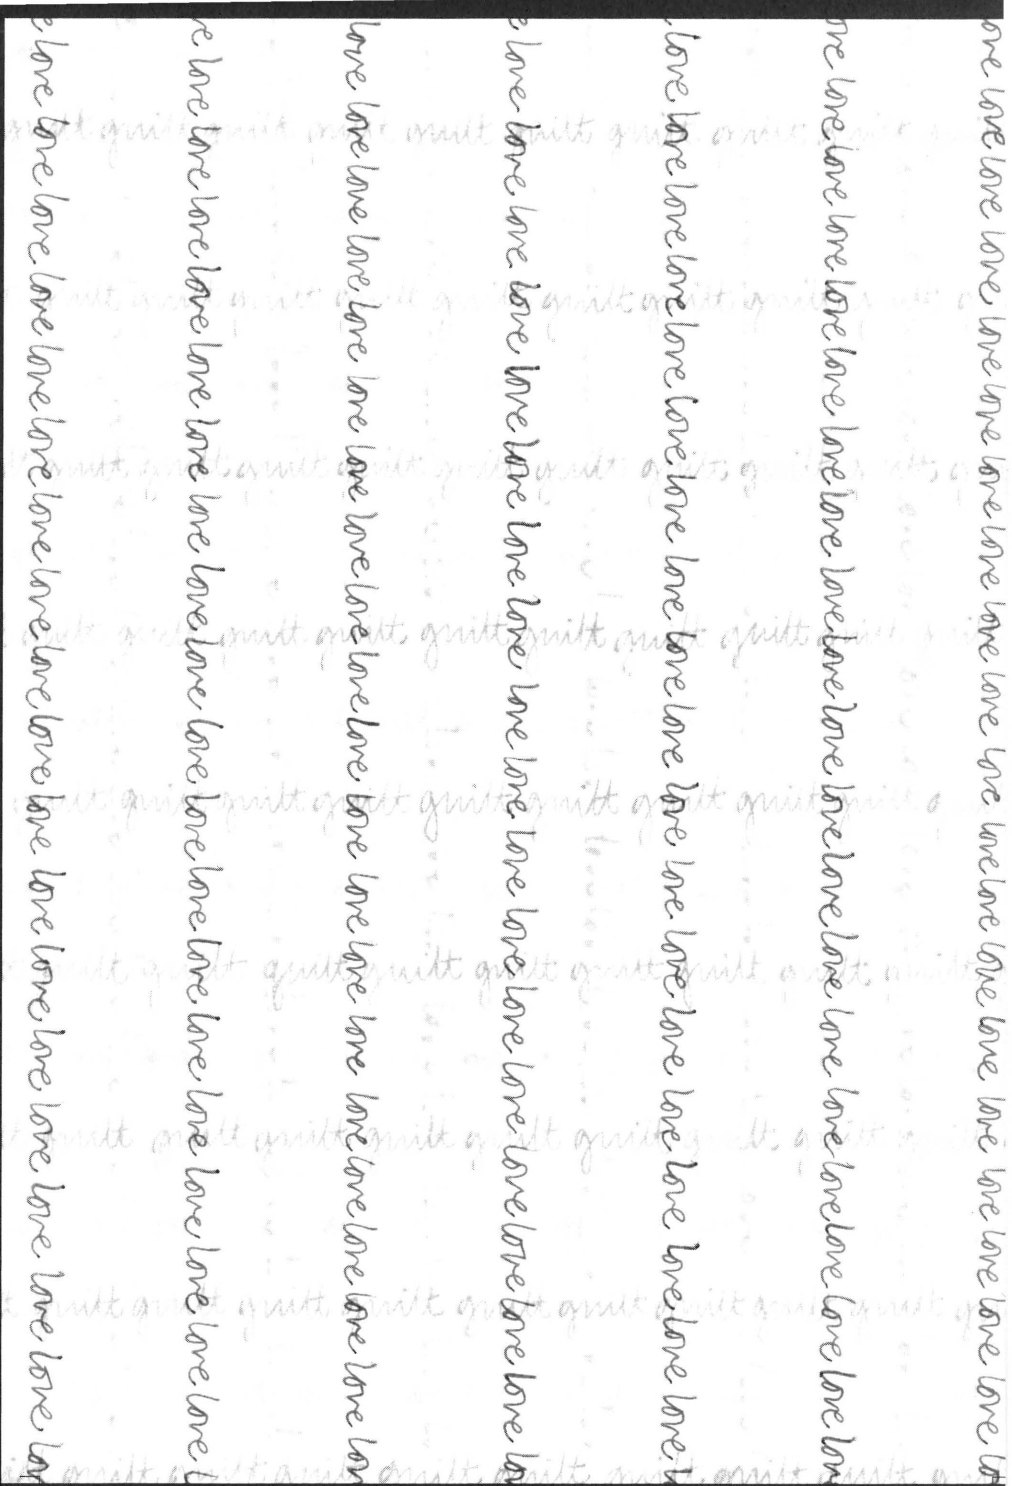 ove love love love love love love love love love love love love love love love love love love love lo
ove love love love love love love love love love love love love love love love love love love love lov
love love love love love love love love love love love love love love love love love love love
e love love love love love love love love love love love love love love love love love love lov
love love love love love love love love love love love love love love love love love love love lov
e love love love love love love love love love love love love love love love love love love love
e love love love love love love love love love love love love love love love love love love lov
guilt guilt guilt guilt guilt guilt guilt guilt guilt
guilt guilt guilt guilt guilt guilt guilt guilt guilt
guilt guilt guilt guilt guilt guilt guilt guilt guilt
guilt guilt guilt guilt guilt guilt guilt guilt guilt
guilt guilt guilt guilt guilt guilt guilt guilt guilt
guilt guilt guilt guilt guilt guilt guilt guilt guilt
guilt guilt guilt guilt guilt guilt guilt guilt guilt
guilt guilt guilt guilt guilt guilt guilt guilt guilt
guilt guilt guilt guilt guilt guilt guilt guilt